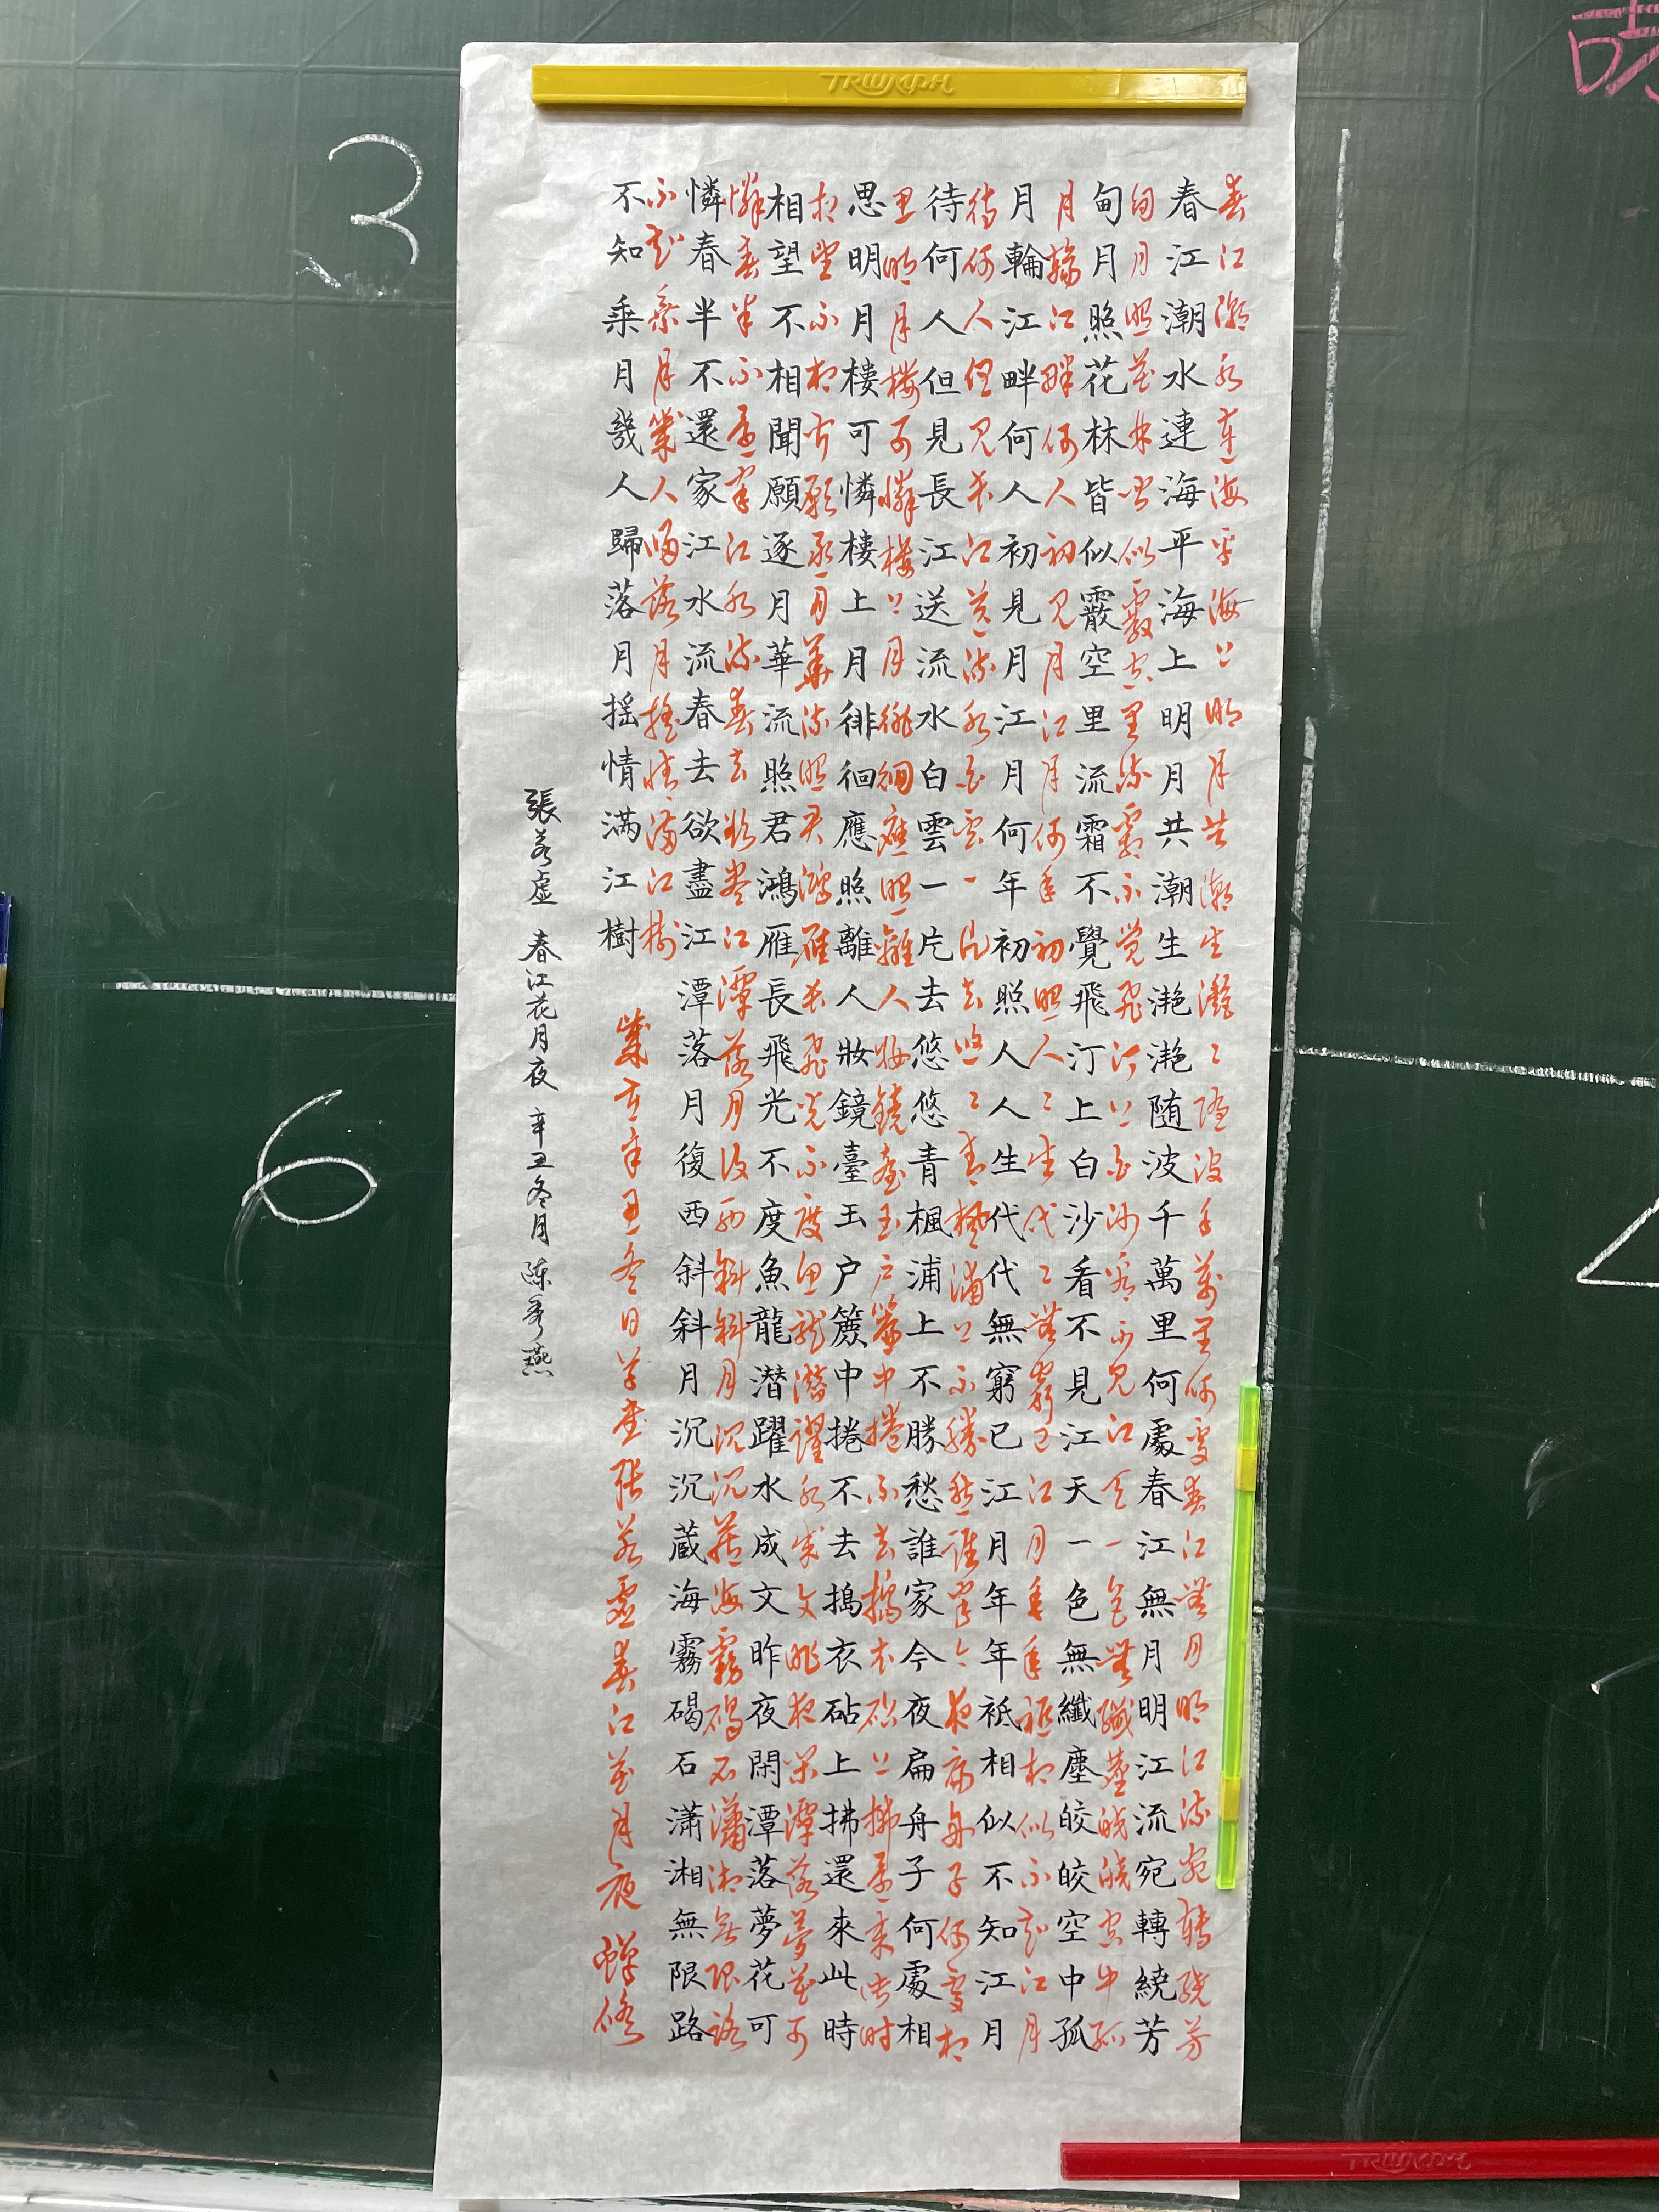 TRIUMPH
春江潮水連海平海上明月共潮生灔灔随波千萬里何處春江無月明江流宛轉繞芳
春江潮水連海平海上明月共潮生灔灔随波千萬里何處春江無月明江流宛轉繞芳
甸月照花林皆似霰空里流霜不覺飛汀上白沙看不見江天一色無纖塵皎皎空中孤
甸月照花林皆似霰空里流霜不覺飛汀上白沙看不見江天一色無纖塵皎皎空中孤
月輪江畔何人初見月江月何年初照人人生代代無窮已江月年年祗相似不知江月
月輪江畔何人初見月江月何年初照人人生代代無窮已江月年年祗相似不知江月
待何人但見長江送流水白雲一片去悠悠青楓浦上不勝愁誰家今夜扁舟子何處相
待何人但見長江送流水白雲一片去悠悠青楓浦上不勝愁誰家今夜扁舟子何處相
思明月樓可憐樓上月徘徊應照離人妝鏡臺玉户簾中捲不去搗衣砧上拂還來此時
思明月樓可憐樓上月徘徊應照離人妝鏡臺玉户簾中捲不去搗衣砧上拂還來此時
相望不相聞願逐月華流照君鴻雁長飛光不度魚龍潛躍水成文昨夜閑潭落夢花可
相望不相聞願逐月華流照君鴻雁長飛光不度魚龍潛躍水成文昨夜閑潭落夢花可
憐春半不還家江水流春去欲盡江潭落月復西斜斜月沉沉藏海霧碣石瀟湘無限路
憐春半不還家江水流春去欲盡江潭落月復西斜斜月沉沉藏海霧碣石瀟湘無限路
不知乘月幾人歸落月摇情满江樹
不知乘月幾人歸落月摇情满江樹
歲在辛丑冬日草書張若虛春江花月夜
張若虚 春江花月夜 辛丑冬月 陳秀燕
3
6
TRIUMPH